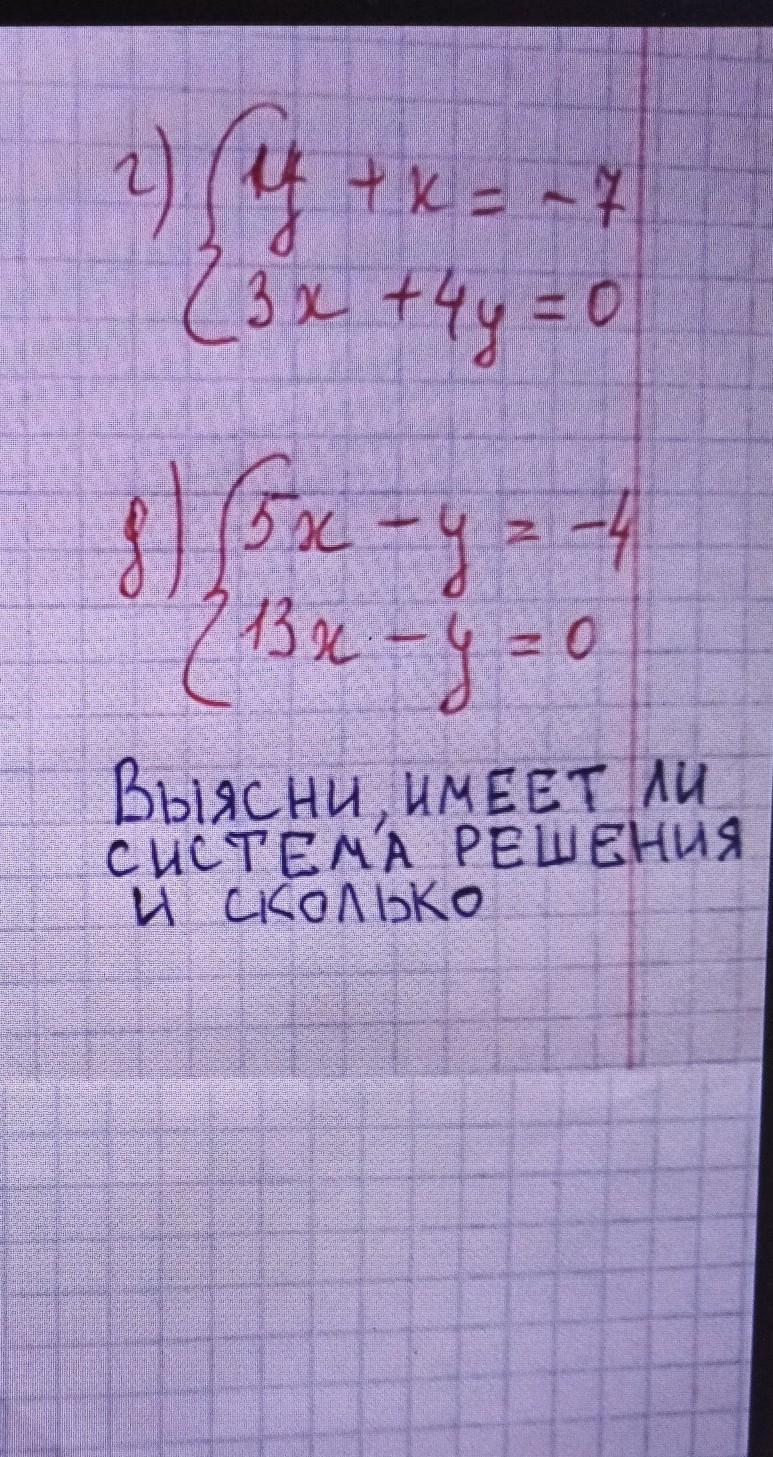 г) { y + x = -7
3x + 4y = 0
д) { 5x - y = -4
13x - y = 0
Выясни, имеет ли
система решения
и сколько